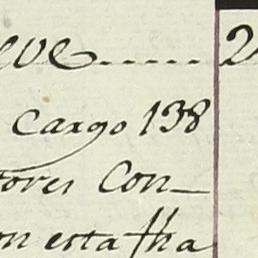 eve..... 2
Cargo 138
tores Con_
on esta fha